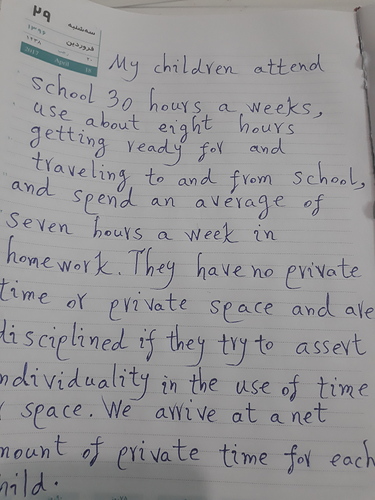 ۲۹
سه‌شنبه
فروردین
۱۳۹۶
۱۴۳۸
۲۰
2017 April 18
My children attend
school 30 hours a weeks,
use about eight hours
getting ready for and
traveling to and from school,
and spend an average of
seven hours a week in
homework. They have no private
time or private space and are
disciplined if they try to assert
ndividuality in the use of time
space. We arrive at a net
mount of private time for each
hild.